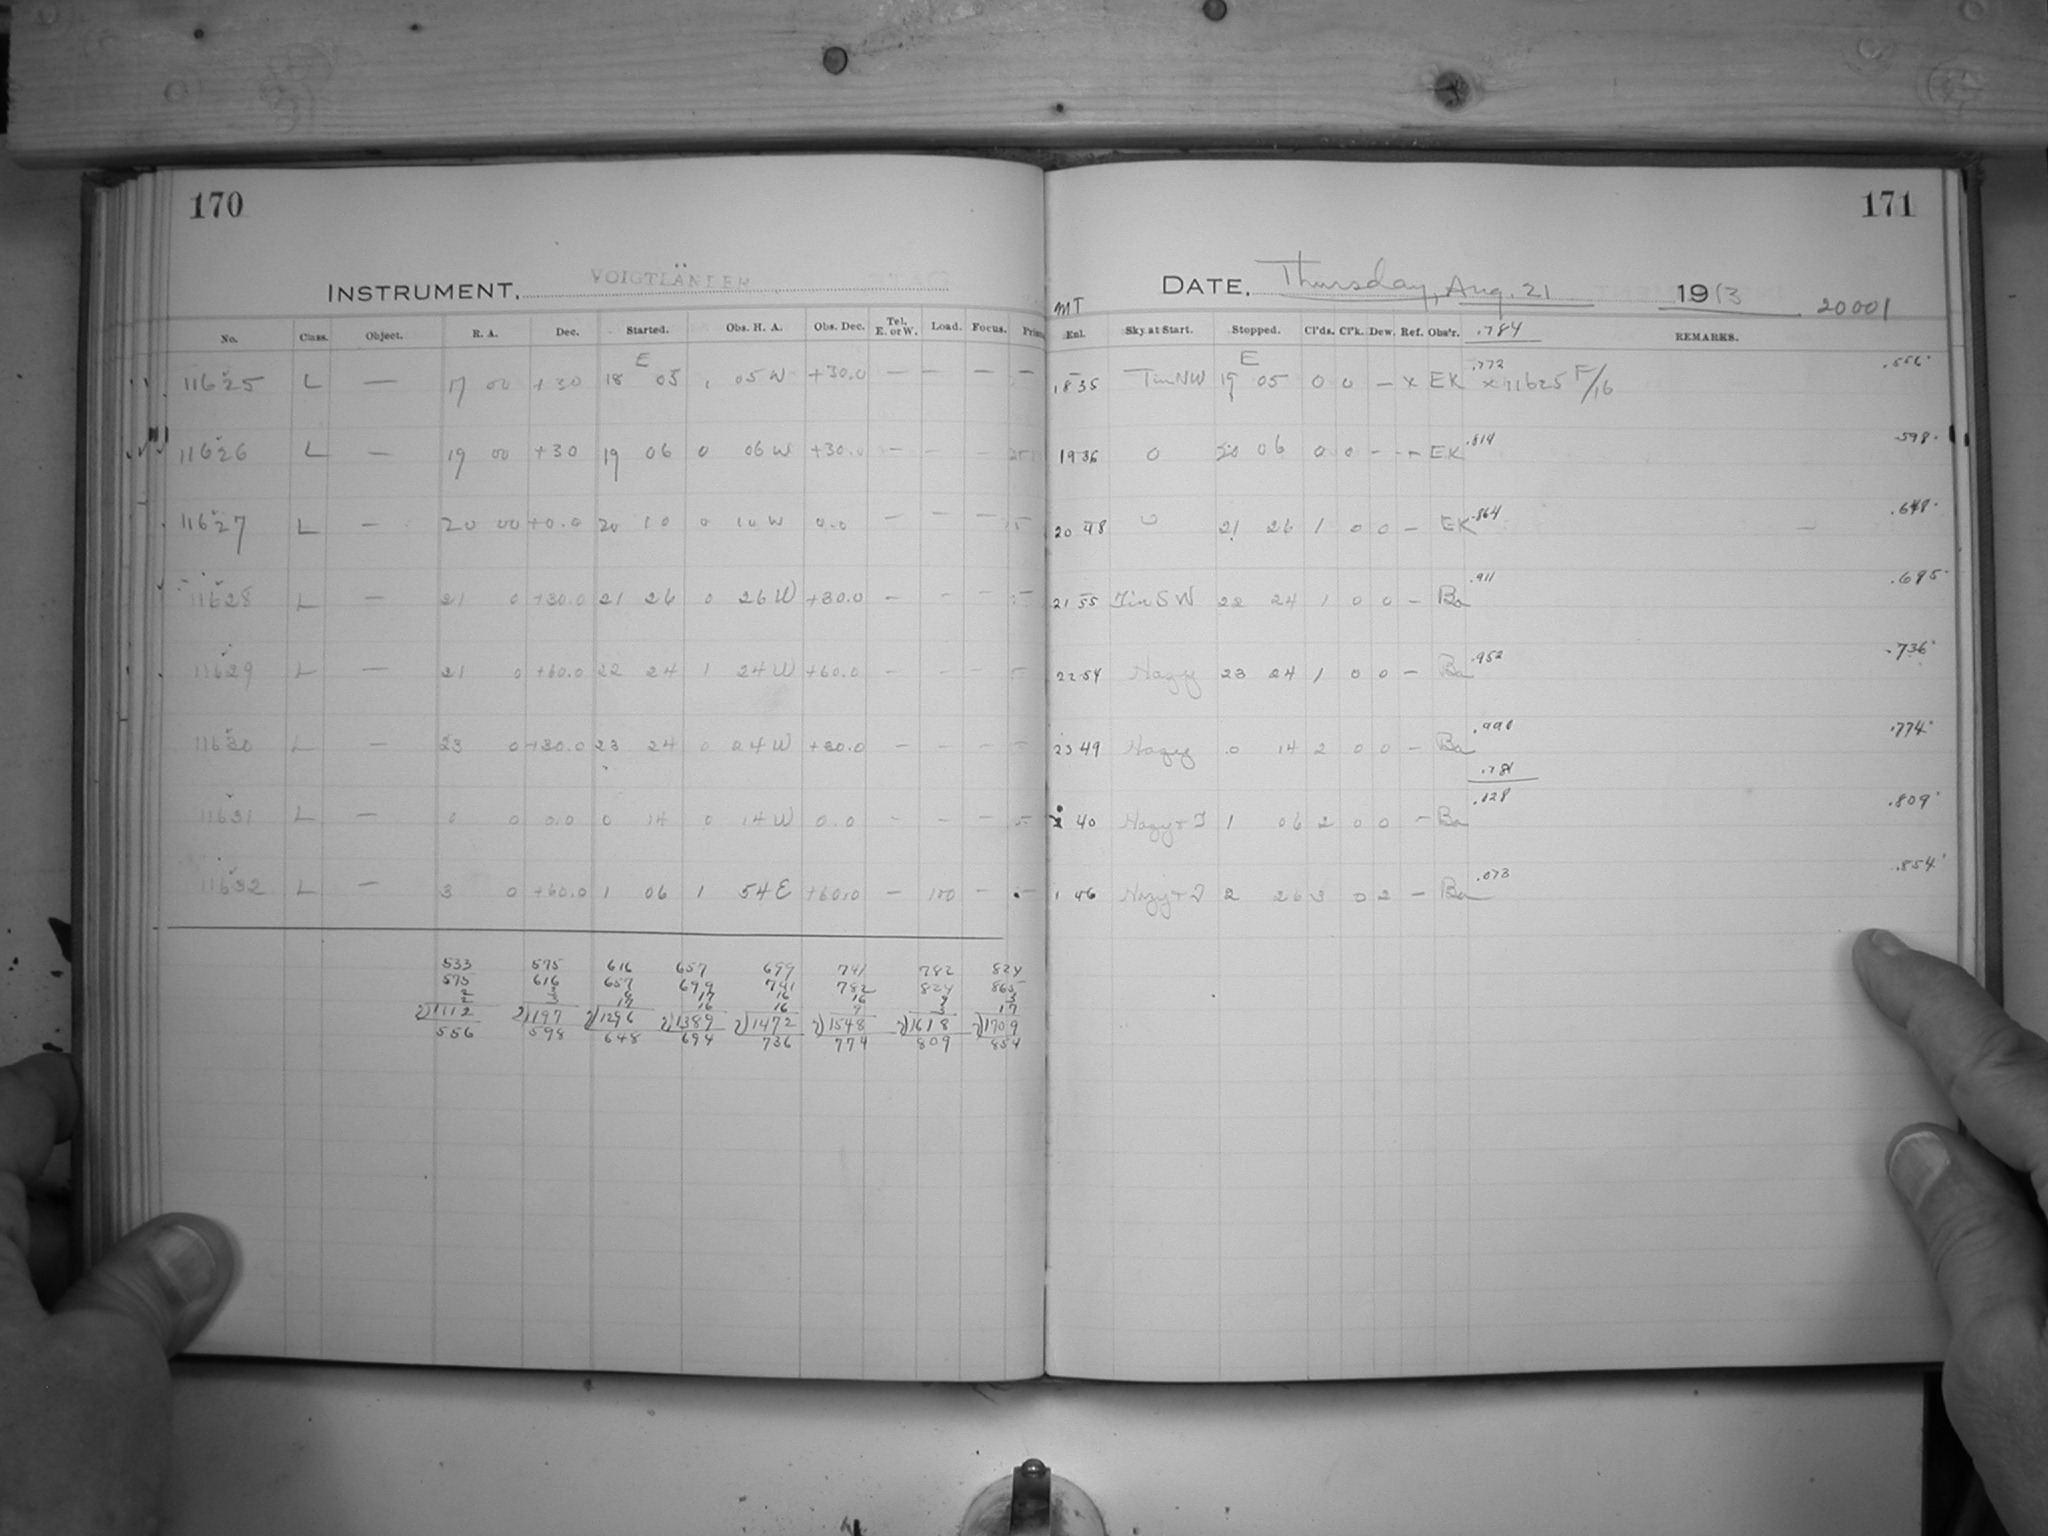 170
171
INSTRUMENT. VOIGTLÄNDER
DATE. Thursday, Aug. 21 1913 20001
No. Class. Object. R. A. Dec. Started. Obs. H. A. Obs. Dec. Tel. E. or W. Load. Focus.
MT Enl. Sky at Start. Stopped. Cl'ds. Cl'k. Dew. Ref. Obs'r. .784 REMARKS.
E
E
11625 L — 17 00 +30 18 05 1 05 W +30.0 — — — — 1835 Tin NW 19 05 0 0 — x EK .772 x 11625 F/16 .556
11626 L — 19 00 +30 19 06 0 06 W +30.0 — — — 1936 0 20 06 0 0 - - EK .814 .598
11627 L — 20 00 +0.0 20 10 0 10 W 0.0 — — — 20 48 0 21 26 1 0 0 — EK .864 .648
11628 L — 21 0 +30.0 21 26 0 26 W +30.0 — — — 21 55 Tin SW 22 24 1 0 0 — Ba .911 .695
11629 L — 21 0 +60.0 22 24 1 24 W +60.0 — — — 22 54 Hazy 23 24 1 0 0 — Ba .952 .736
11630 L — 23 0 +30.0 23 24 0 24 W +30.0 — — — 23 49 Hazy 0 14 2 0 0 — Ba .990 .774
.784
11631 L — 0 0 0.0 0 14 0 14 W 0.0 — — — 40 Hazy + I 1 06 2 0 0 — Ba .028 .809
11632 L — 3 0 +60.0 1 06 1 54 E +60.0 — 100 — 1 46 Hazy + I 2 26 3 0 2 — Ba .073 .854
533 575 616 657 699 741 782 824
575 616 657 699 741 782 824 865
2 3 6 17 16 16 9 3
2 3 17 16 16 9 3 17
2)1112 2)1197 2)1296 2)1389 2)1472 2)1548 2)1618 2)1709
556 598 648 694 736 774 809 854